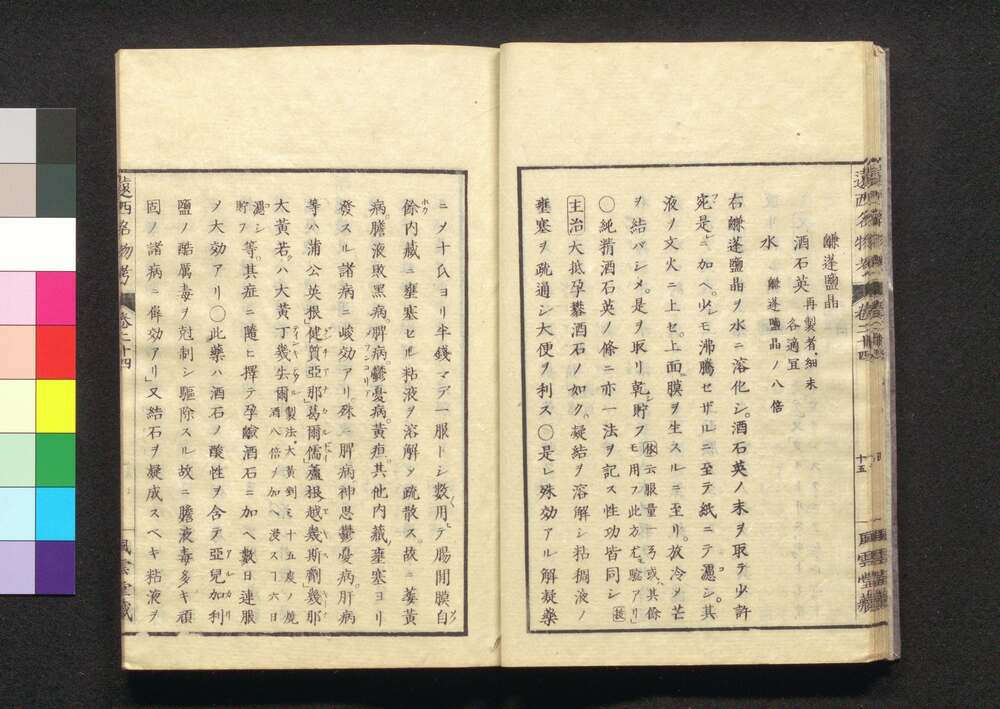 鹻蓬鹽晶
酒石英 再製者、細末 各適宜
水 鹻蓬鹽晶ノ八倍
右鹻蓬鹽晶ヲ水ニ溶化シ。酒石英ノ末ヲ取テ少許
宛是ニ加ヘ。少シモ沸騰セザルニ至テ紙ニテ濾シ。其
液ノ文火ニ上セ。上面膜ヲ生スルニ至リ。放冷メ芒
ヲ結バシメ。是ヲ取リ乾シ貯フ
○純精酒石英ノ條ニ亦一法ヲ記ス性功皆同シ
主治大抵孕鹻酒石ノ如ク。凝結ヲ溶解シ粘稠液ノ
壅塞ヲ疏通シ大便ヲ利ス○是レ殊効アル解凝藥
遠西名物考 卷二十四
十五
風雲堂藏
ニメ十氏ヨリ半錢マデ一服トシ數用テ腸間膜自
餘內藏ニ壅塞セル粘液ヲ溶解メ疏散ス。故ニ萎黃
病。膽液敗黑病。脾病鬱憂病。黃疸。其他內藏壅塞ヨリ
發スル諸病ニ峻効アリ。殊ニ脾病神思鬱憂病。肝病
等ハ蒲公英根健質亞那葛爾儒蘆根越幾斯劑幾那
大黃若クハ大黃丁幾去爾 製法、大黃剉ミ十五戔ノ燒酒八倍ヲ加ヘ浸スコ六日
濾シ貯フ 等。其症ニ隨ヒ擇テ孕鹻酒石ニ加ヘ數日連服
メ大効アリ○此藥ハ酒石ノ酸性ヲ含テ亞兒加利
鹽ノ酷厲毒ヲ尅制シ驅除スル故ニ膽液毒多キ頑
固ノ諸病ニ僻効アリ」又結石ヲ凝成スベキ粘液ヲ
遠西名物考 卷二十四
風雲堂藏